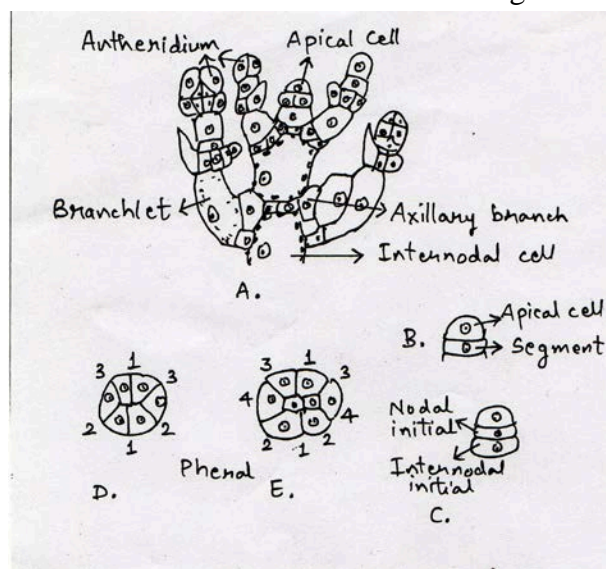 Antheridium
Apical Cell
Branchlet
Axillary branch
Internodal cell
A.
B.
Apical cell
Segment
3 1 3
2 1 2
D.
3 1 3
4 4
2 1 2
E.
Phenol
Nodal
initial
Internodal
initial
C.